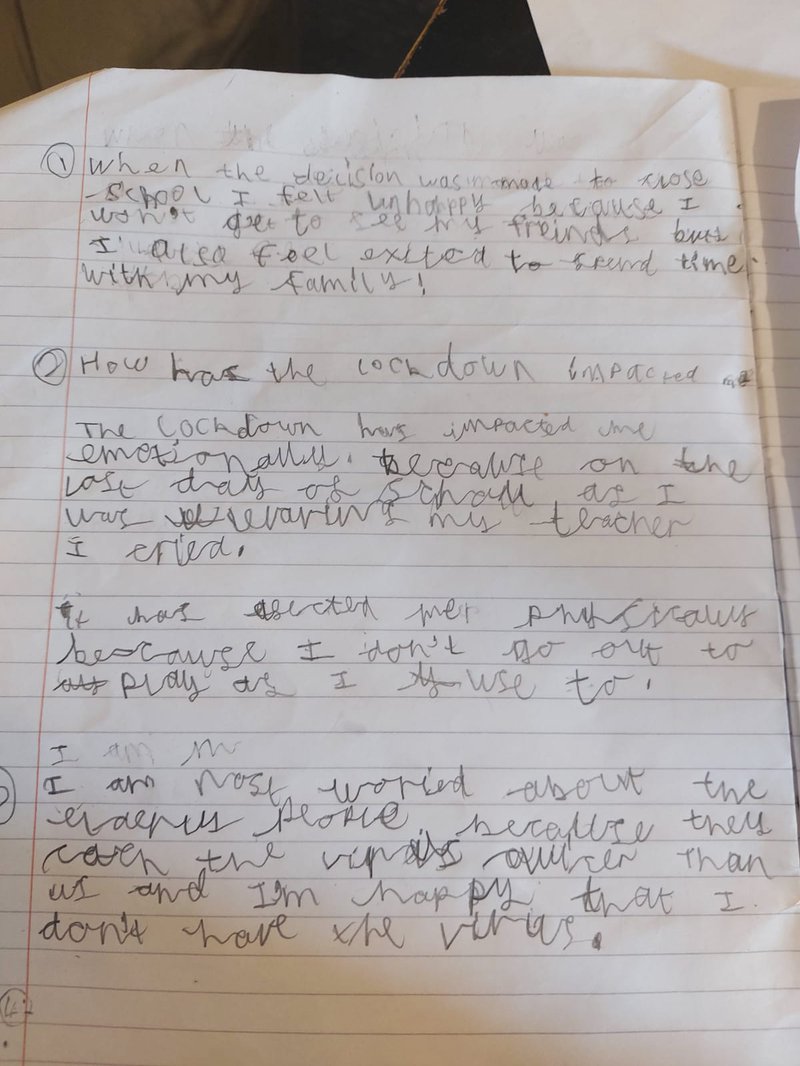 ① When the decision was made to close
school I felt unhappy because I
won't get to see my freinds but
I also feel exited to spend time
with my family!
② How has the lockdown impacted me
The lockdown has impacted me
emotionally. because on the
last day of school as I
was my teacher
I cried.
It has me physically
because I don't go out to
play as I use to.
I am m
I am most woried about the
people. because they
the virus than
us and I'm happy that I
don't have the virius.
④